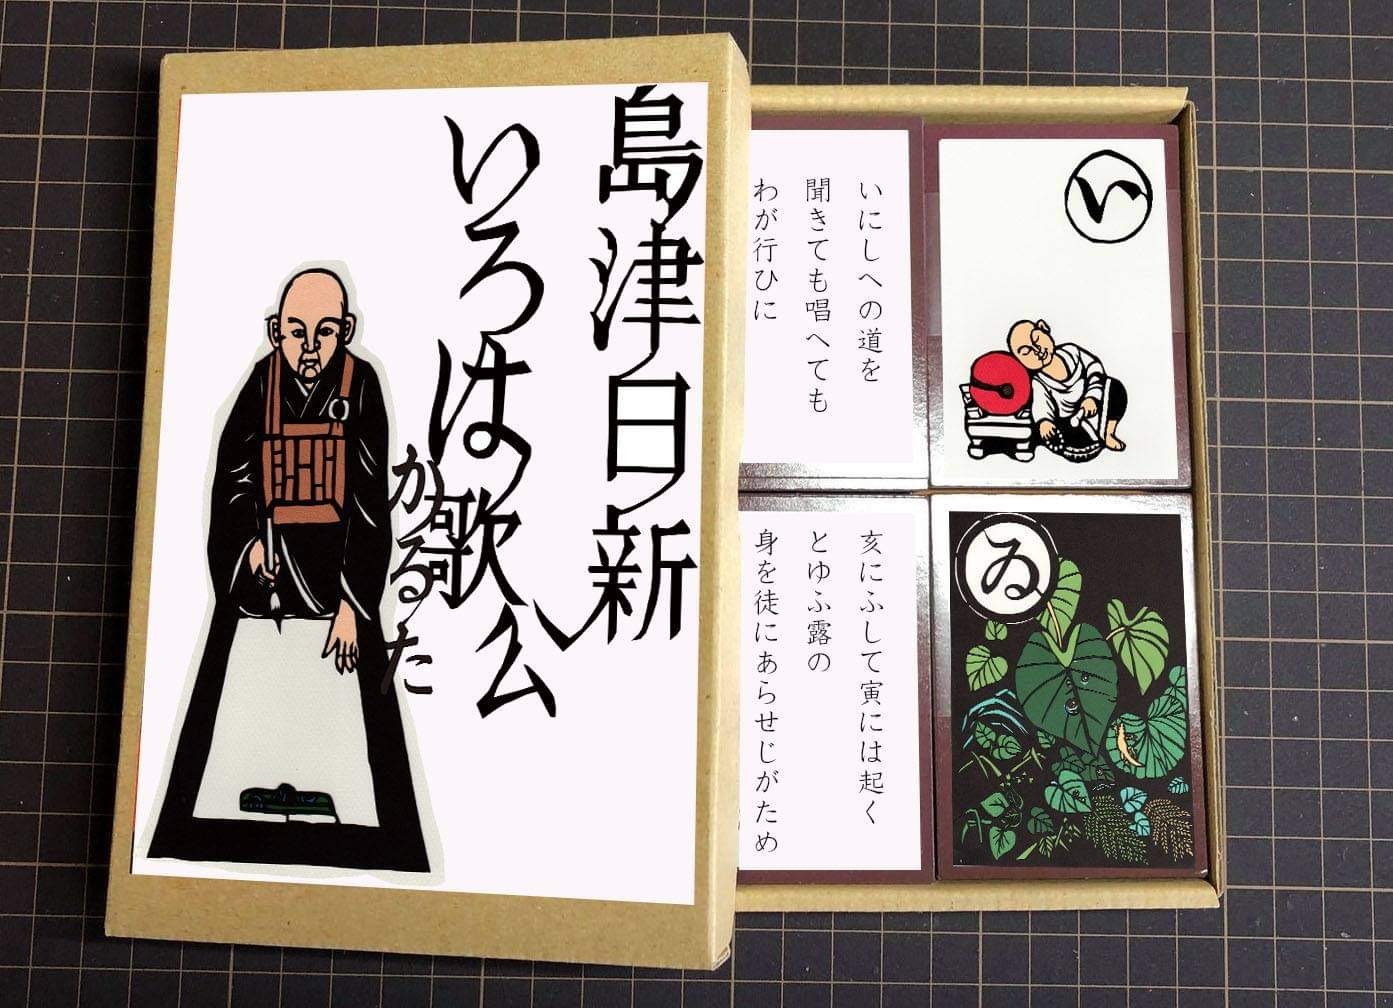 島津日新公
いろは歌
かるた
い
いにしへの道を
聞きても唱へても
わが行ひに
ゐ
亥にふして寅には起く
とゆふ露の
身を徒にあらせじがため